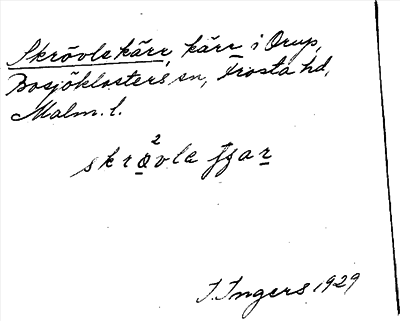 Skrövlekärr, kärr i Orup,
Bosjöklosters sn, Frosta hd,
Malm. l.
skrò²vle
I. Ingers 1929